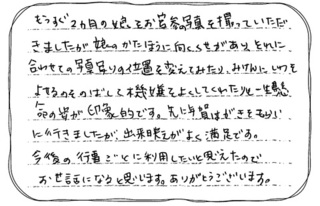 もうすぐ2カ月の娘とお宮参写真を撮っていただ
きましたが娘のかたほうに向くくせがあり、それに
合わせての写真よりの位置を変えてみたり、みけんにしわを
よするのをのばして不機嫌をよくしてくれたりと一生懸
命の姿が印象的です。先に年賀はがきをもらい
に行きましたが、出来映えがよく満足です。
今後の行事ごとに利用したいと思えたので
おせ話になると思います。ありがとうございます。